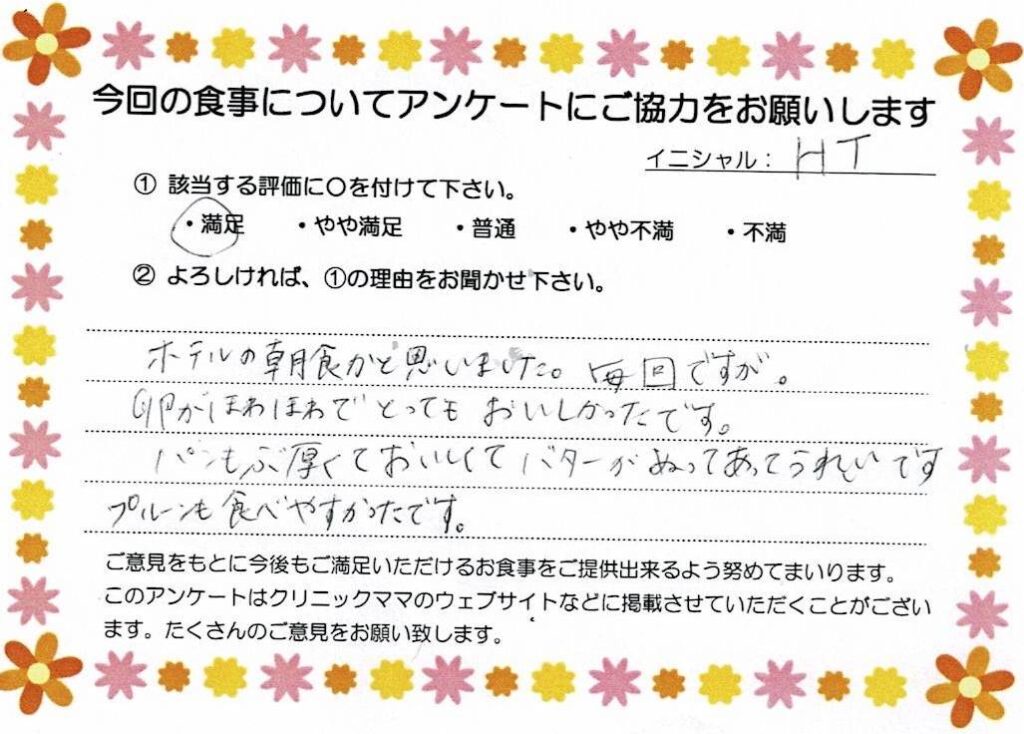 今回の食事についてアンケートにご協力をお願いします
イニシャル： HT
① 該当する評価に〇を付けて下さい。
・満足 ・やや満足 ・普通 ・やや不満 ・不満
② よろしければ、①の理由をお聞かせ下さい。
ホテルの朝食かと思いました。毎回ですが。
卵がほわほわでとってもおいしかったです。
パンもぶ厚くておいしくてバターがぬってあってうれしいです
プルーンも食べやすかったです。
ご意見をもとに今後もご満足いただけるお食事をご提供出来るよう努めてまいります。
このアンケートはクリニックママのウェブサイトなどに掲載させていただくことがござい
ます。たくさんのご意見をお願い致します。